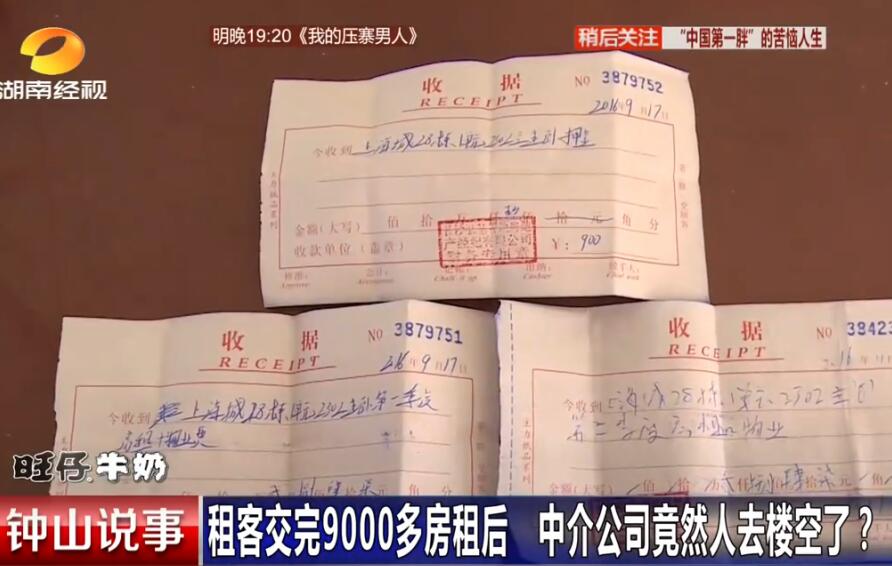 明晚19:20《我的压寨男人》
稍后关注 "中国第一胖"的苦恼人生
湖南经视
收 据
RECEIPT
NO 3879752
2016年9月17日
今收到 上海城28栋1单元2302主卧押金
金额(大写) 佰 拾 万 仟 玖佰 拾 元 角 分
产经纪有限公司
财务专用章
收款单位(盖章) ¥:900
收 据
RECEIPT
NO 3879751
2016年9月17日
今收到 上海城28栋1单元2302主卧第一季度
房租+物业费
收 据
RECEIPT
NO 38423
今收到 上海城28栋1单元2302主卧
第二季度房租 物业
旺仔牛奶
钟山说事
租客交完9000多房租后 中介公司竟然人去楼空了?